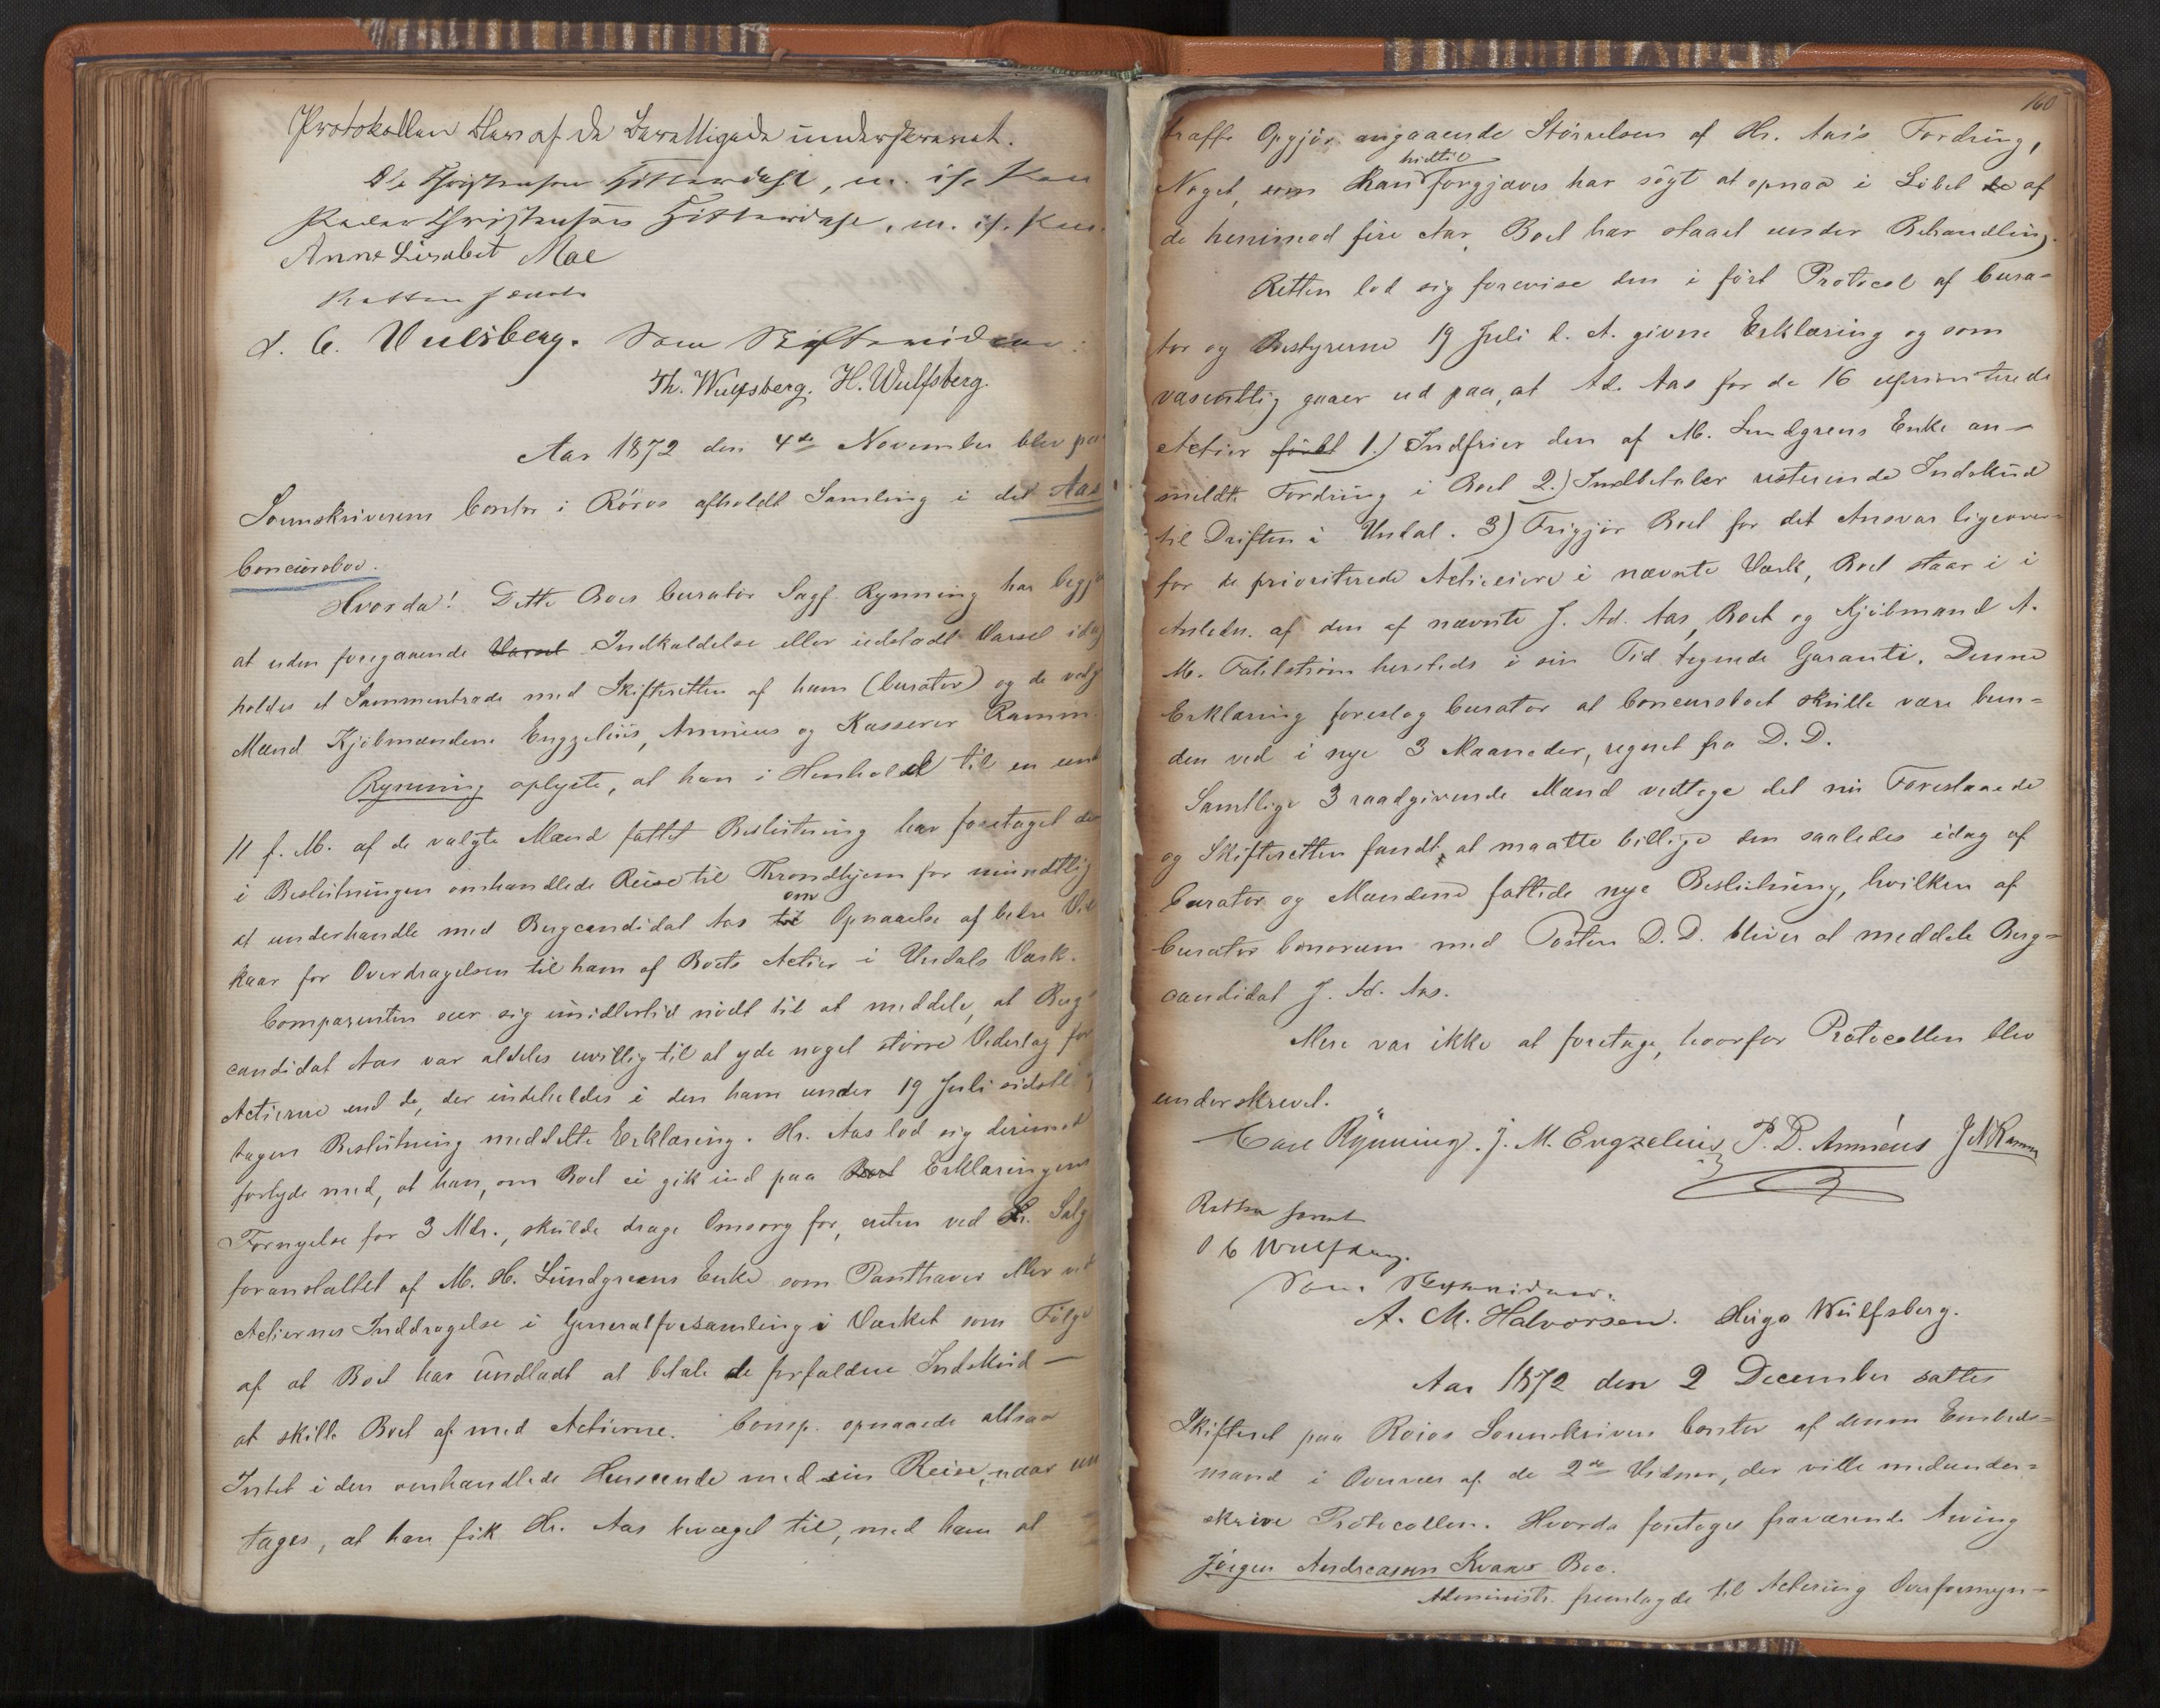 Protokollen blev af de Vedkommende underskrevet.
Ole Christensen Hitterdahl, m. i. P.
Peder Christensen Hitterdahl, m. i. P.
Anne Lisabet Moe
Retten hævet
O. C. Wulfsberg. Som Skiftevidner:
Th. Wulfsberg. H. Wulfsberg.
Aar 1872 den 4de November blev paa
Sorenskriverens Contor i Röros afholdt Samling i det Aas
Concursboe.
Hvorda! Dette Boes Curator Sagf. Rynning har begjæ
at uden foregaaende Varsel Indkaldelse eller udstædt Varsel idag
holdes et Sammentræde med Skifteretten af ham (Curator) og de valg
Mænd Kjöbmændene Engzeliüs, Amneus og Kasserer Ramm.
Rynning oplyste, at han i Henhold til en und
11 f. M. af de valgte Mænd fattet Beslutning har foretaget den
i Beslutningen omhandlede Reise til Throndhjem for mundtlig
at underhandle med Bergcandidat Aas til om Opnaaelse af bedre Vil
kaar for Overdragelsen til ham af Boets Actier i Undals Værk.
Comparenten saa sig imidlertid nödt til at meddele, at Berg-
candidat Aas var aldeles uvillig til at yde noget större Vederlag for
Actierne end de, der indeholdes i den ham under 19 Juli sidstl.
tagen Beslutning meddelte Erklæring. Hr. Aas lod sig derimod
forlyde med, at han, om Boet ei gik ind paa Boet Erklæringens
Fornyelse for 3 Mdr., skulde drage Omsorg for, enten ved Salg
foranstaltet af M. H. Lündgreens Enke som Panthaver eller ved
Actiernes Inddragelse i Generalforsamling i Værket som Fölge
af at Boet har undladt at betale de forfaldne Indskud —
at skille Boet af med Actierne. Comp. opnaaede altsaa
Intet i den omhandlede Henseende med sin Reise, naar un
tages, at han fik Hr. Aas bevæget til, med ham at
160
træffe Opgjör angaaende Störrelsen af Hr. Aas's Fordring,
Noget, som han hidtil forgjæves har sögt at opnaa i Löbet de af
de henimod fire Aar, Boet har staaet under Behandling.
Retten lod sig forevise den i fört Protocol af Cura-
tor og Bestyrerne 19 Juli d. A. givne Erklæring og som
væsentlig gaaer ud paa, at Ad. Aas for de 16 upriviterede
Actier først 1.) Indfrier den af M. Lundgrens Enke an-
meldte Fordring i Boet 2.) Indbetaler resterende Indskud
til Driften i Undal. 3) Frigjör Boet for det Ansvar ligeover-
for de prioriterede Actieeiere i nævnte Værk, Boet staar i i
Anledn. af den af nævnte J. Ad. Aas, Boet og Kjöbmand A.
M. Fahlström hersteds i sin Tid tegnede Garanti. Denne
Erklæring foreslog Curator at Concursboet skulle være bun-
den ved i nye 3 Maaneder, regnet fra D. D.
Samtlige 3 raadgivende Mænd vedtoge det nu Foreslaaede
og Skifteretten fandt, at maatte billige den saaledes idag af
Curator og Mændene fattede nye Beslutning, hvilken af
Curator bonorum med Posten D. D. bliver at meddele Berg-
candidat J. Ad. Aas.
Mere var ikke at foretage, hvorfor Protocollen blev
underskrevet.
Carl Rynning. J. M. Engzelius P. D. Amnéus J N Ramm
Retten hævet
O C Wulfsberg.
Som Skiftevidner.
A. M. Halvorsen. Hugo Wülfsberg.
Aar 1872 den 2 December sattes
Skifteret paa Röros Sorenskriver Contor af denne Embeds-
mand i Overvær af de 2de Vidner, der ville medunder-
skrive Protocollen. Hvorda foretoges fraværende Arving
Jörgen Andreasen Kvaas Boe.
Administr. fremlagde til Actering Overformyn-